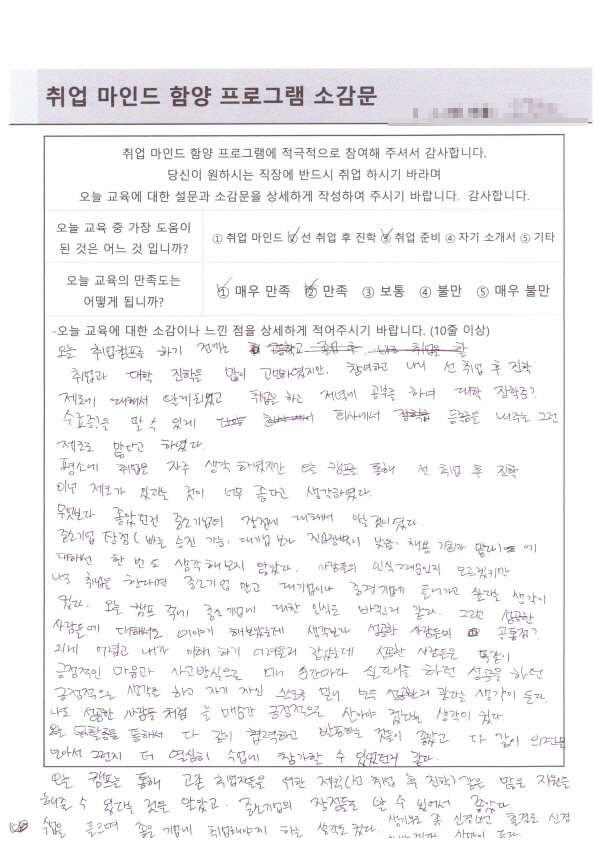 취업 마인드 함양 프로그램 소감문
취업 마인드 함양 프로그램에 적극적으로 참여해 주셔서 감사합니다.
당신이 원하시는 직장에 반드시 취업 하시기 바라며
오늘 교육에 대한 설문과 소감문을 상세하게 작성하여 주시기 바랍니다. 감사합니다.
오늘 교육 중 가장 도움이
된 것은 어느 것 입니까?
① 취업 마인드 ② 선 취업 후 진학 ③ 취업 준비 ④ 자기 소개서 ⑤ 기타
오늘 교육의 만족도는
어떻게 됩니까?
① 매우 만족 ② 만족 ③ 보통 ④ 불만 ⑤ 매우 불만
-오늘 교육에 대한 소감이나 느낀 점을 상세하게 적어주시기 바랍니다. (10줄 이상)
오늘 취업캠프를 하기 전에는 고등학교 졸업 후, 나는 취업을 할
취업과 대학 진학을 많이 고민하였지만, 참여하고 나니 선 취업 후 진학
제도에 대해서 알게되었고 취업을 하고 저녁에 공부를 하며 대학 장학금?
수료증?을 딸 수 있게 회사에서 등록금을 내주는 그런
제도도 많다고 하였다.
평소에 취업은 자주 생각 하였지만 캠프를 통해 선 취업 후 진학
이런 제도가 있다는 것이 너무 좋다고 생각하였다.
무엇보다 좋았던건 중소기업의 장점에 대해서 안 것이였다.
중소기업 장점 (빠른 승진 가능. 대기업 보다 진입장벽이 낮음. 채용 기회가 많다) 에
대해선 한 번도 생각해보지 않았다. 사람들의 인식때문인지 모르겠지만
나도 취업을 한다면 중소기업 말고 대기업이나 중견기업에 들어가고 싶다는 생각이
컸다. 오늘 캠프 후에 중소기업에 대한 인식도 바뀐거 같다. 그리고 성공한
사람들에 대해서도 이야기 해보았는데 생각보다 성공한 사람들의 공통점?
되게 어렵고 내가 이해 하기 어려울거 같았는데 성공한 사람들은 똑같이
긍정적인 마음과 사고방식으로 매 순간마다 실패를 하던 성공을 하던
긍정적으로 생각을 하고 자기 자신 스스로를 믿어 모두 성공한거 같다는 생각이 든다.
나도 성공한 사람들 처럼 늘 매순간 긍정적으로 살아야 겠다는 생각이 컸다.
오늘 통해서 다 같이 협력하고 반응하는 것들이 좋았고 다 같이 의견을
모아서 그런지 더 열심히 수업에 참가할 수 있었던거 같다.
오늘 캠프를 통해 고졸 취업자들을 위한 제도(선 취업 후 진학) 같은 많은 지원을
해줄 수 있다는 것을 알았고. 중소기업의 장점들도 알 수 있어서 좋았다.
수업을 들으며 좋은 기업에 취업해야지 하는 생각도 컸다.